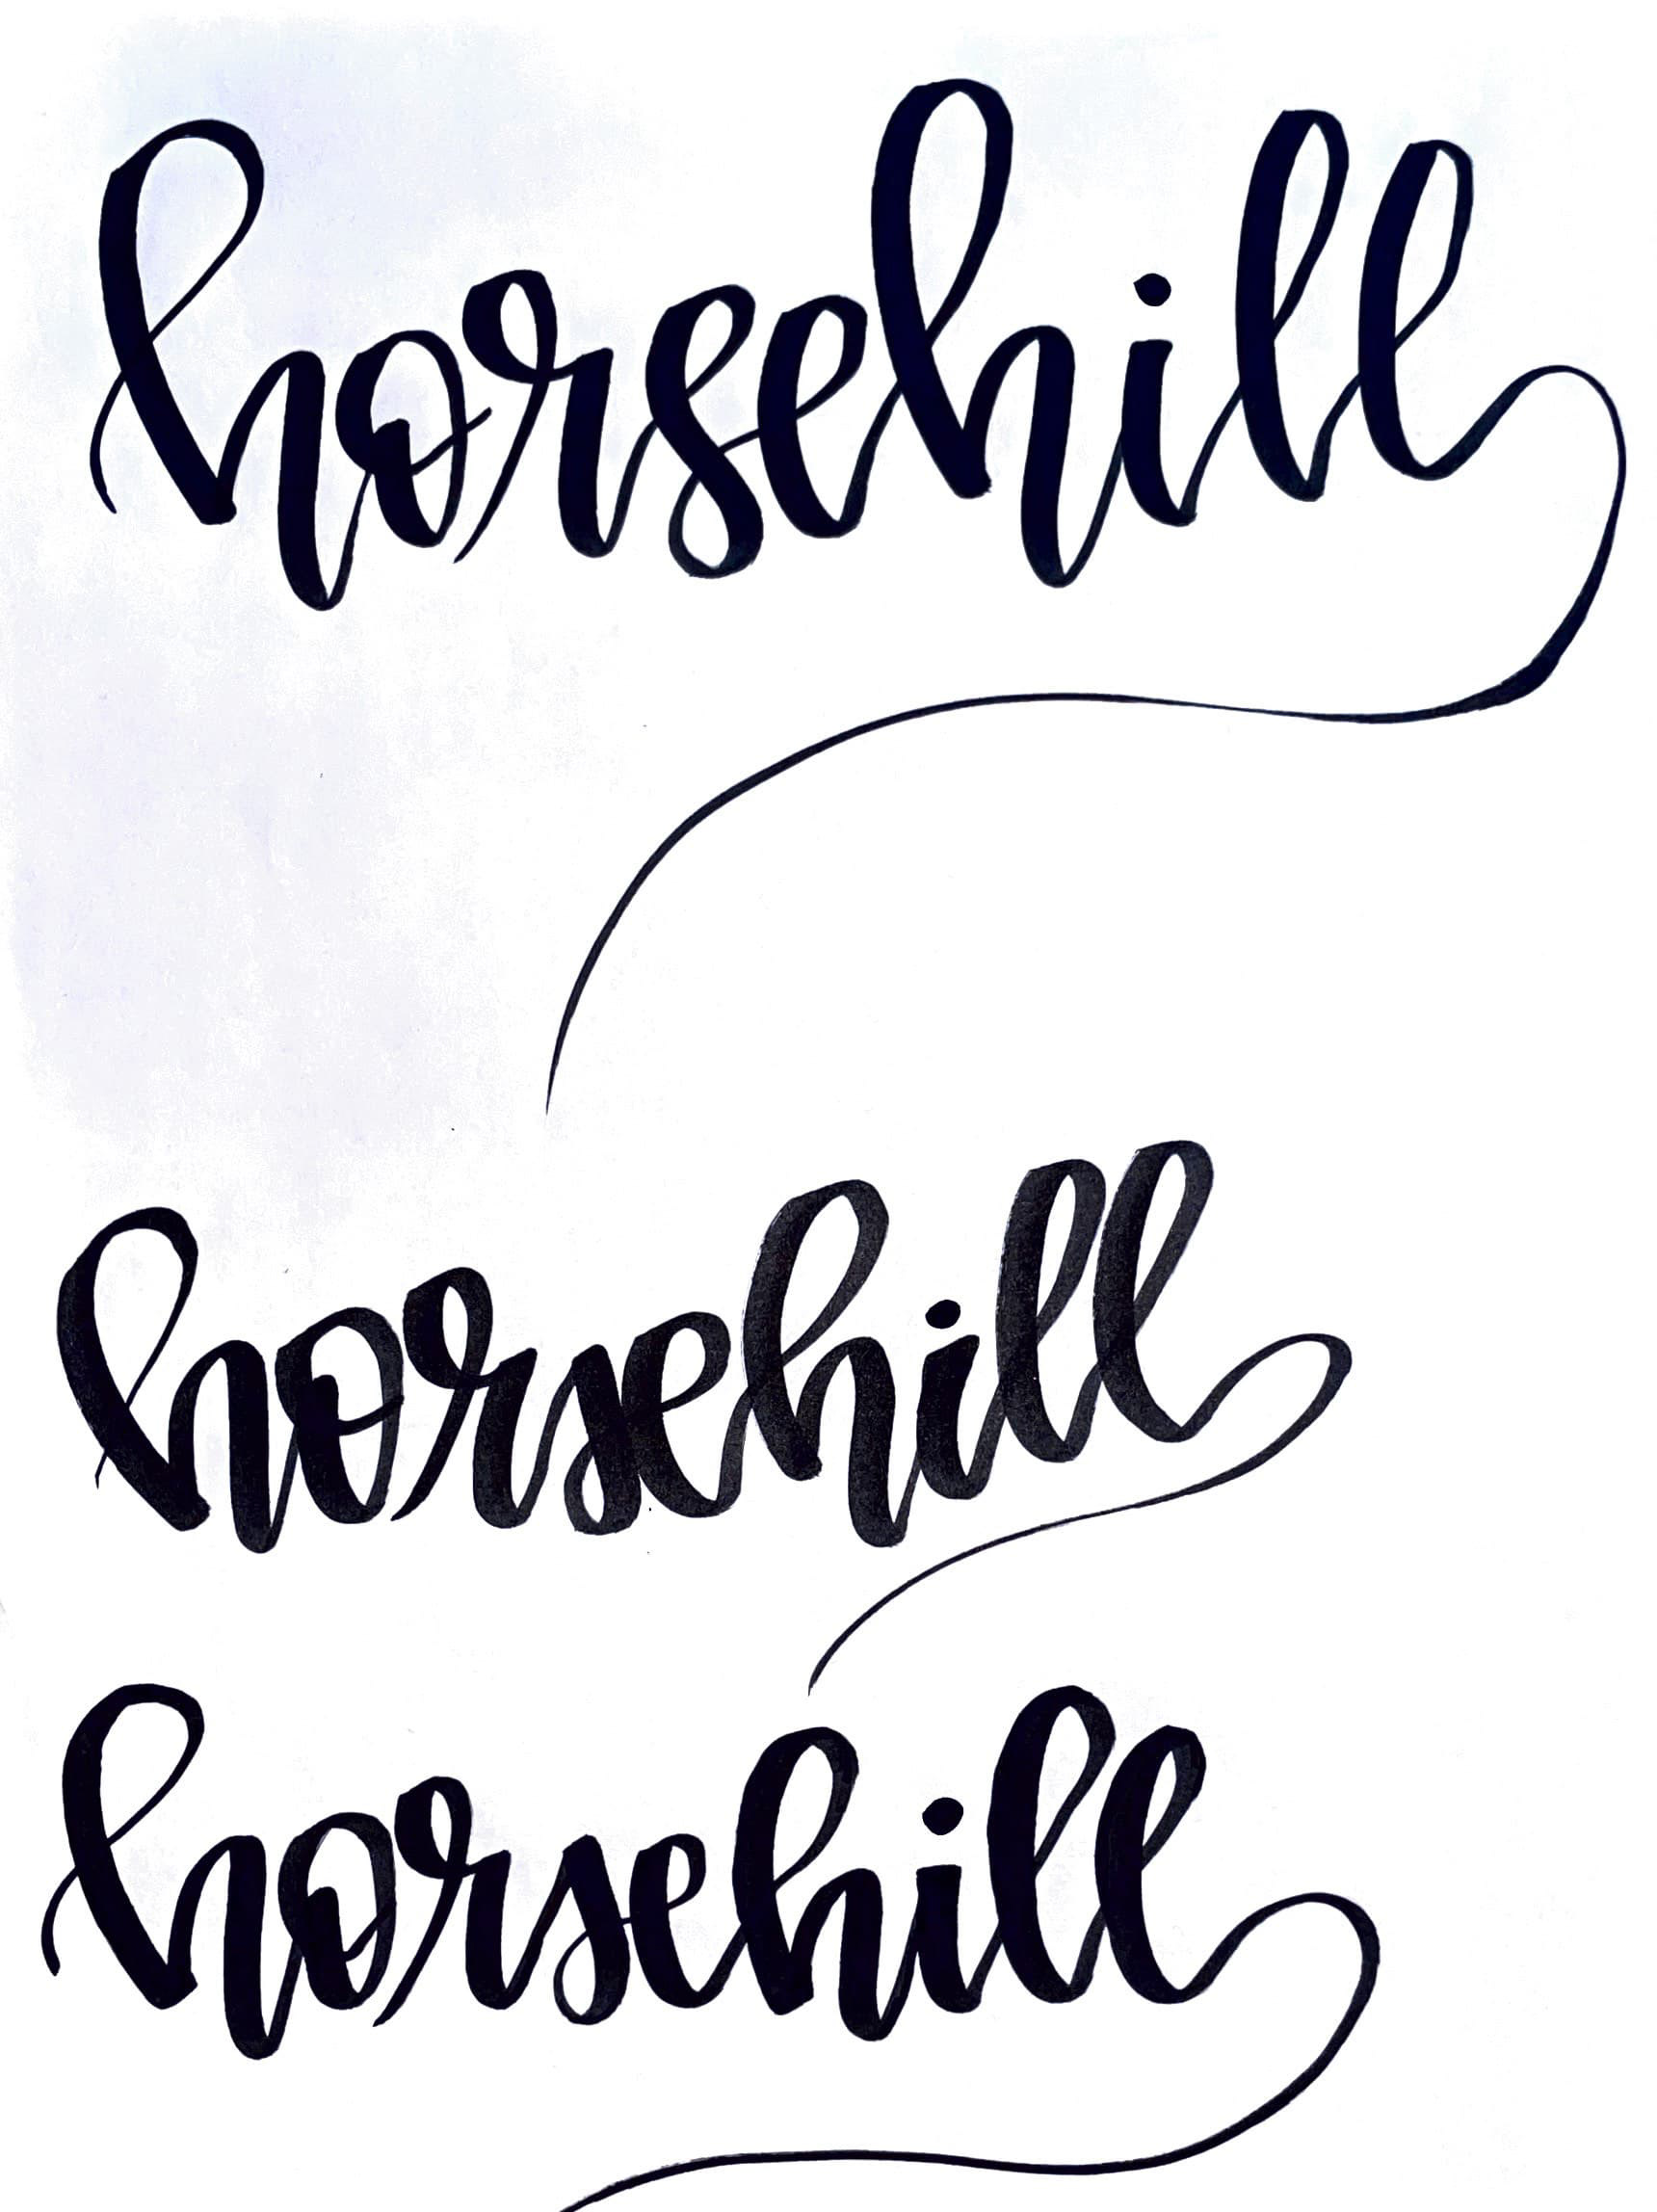 horsehill
horsehill
horsehill